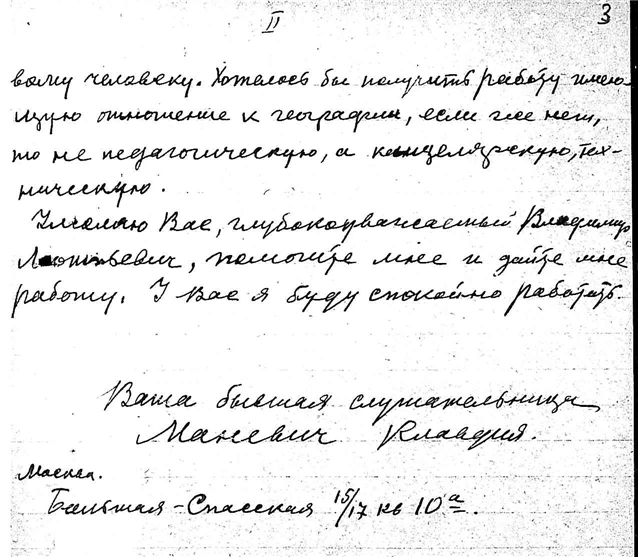 II
3
вому человеку. Хотелось бы получить работу имею-
щую отношение к географии, если же нет,
то не педагогическую, а канцелярскую, тех-
ническую.
Умоляю Вас, глубокоуважаемый Владимир
Леонтьевич, помогите мне и дайте мне
работу. У Вас я буду спокойно работать.
Ваша бывшая слушательница
Маневич Клавдия.
Москва.
Большая-Спасская 15/17 кв 10а.